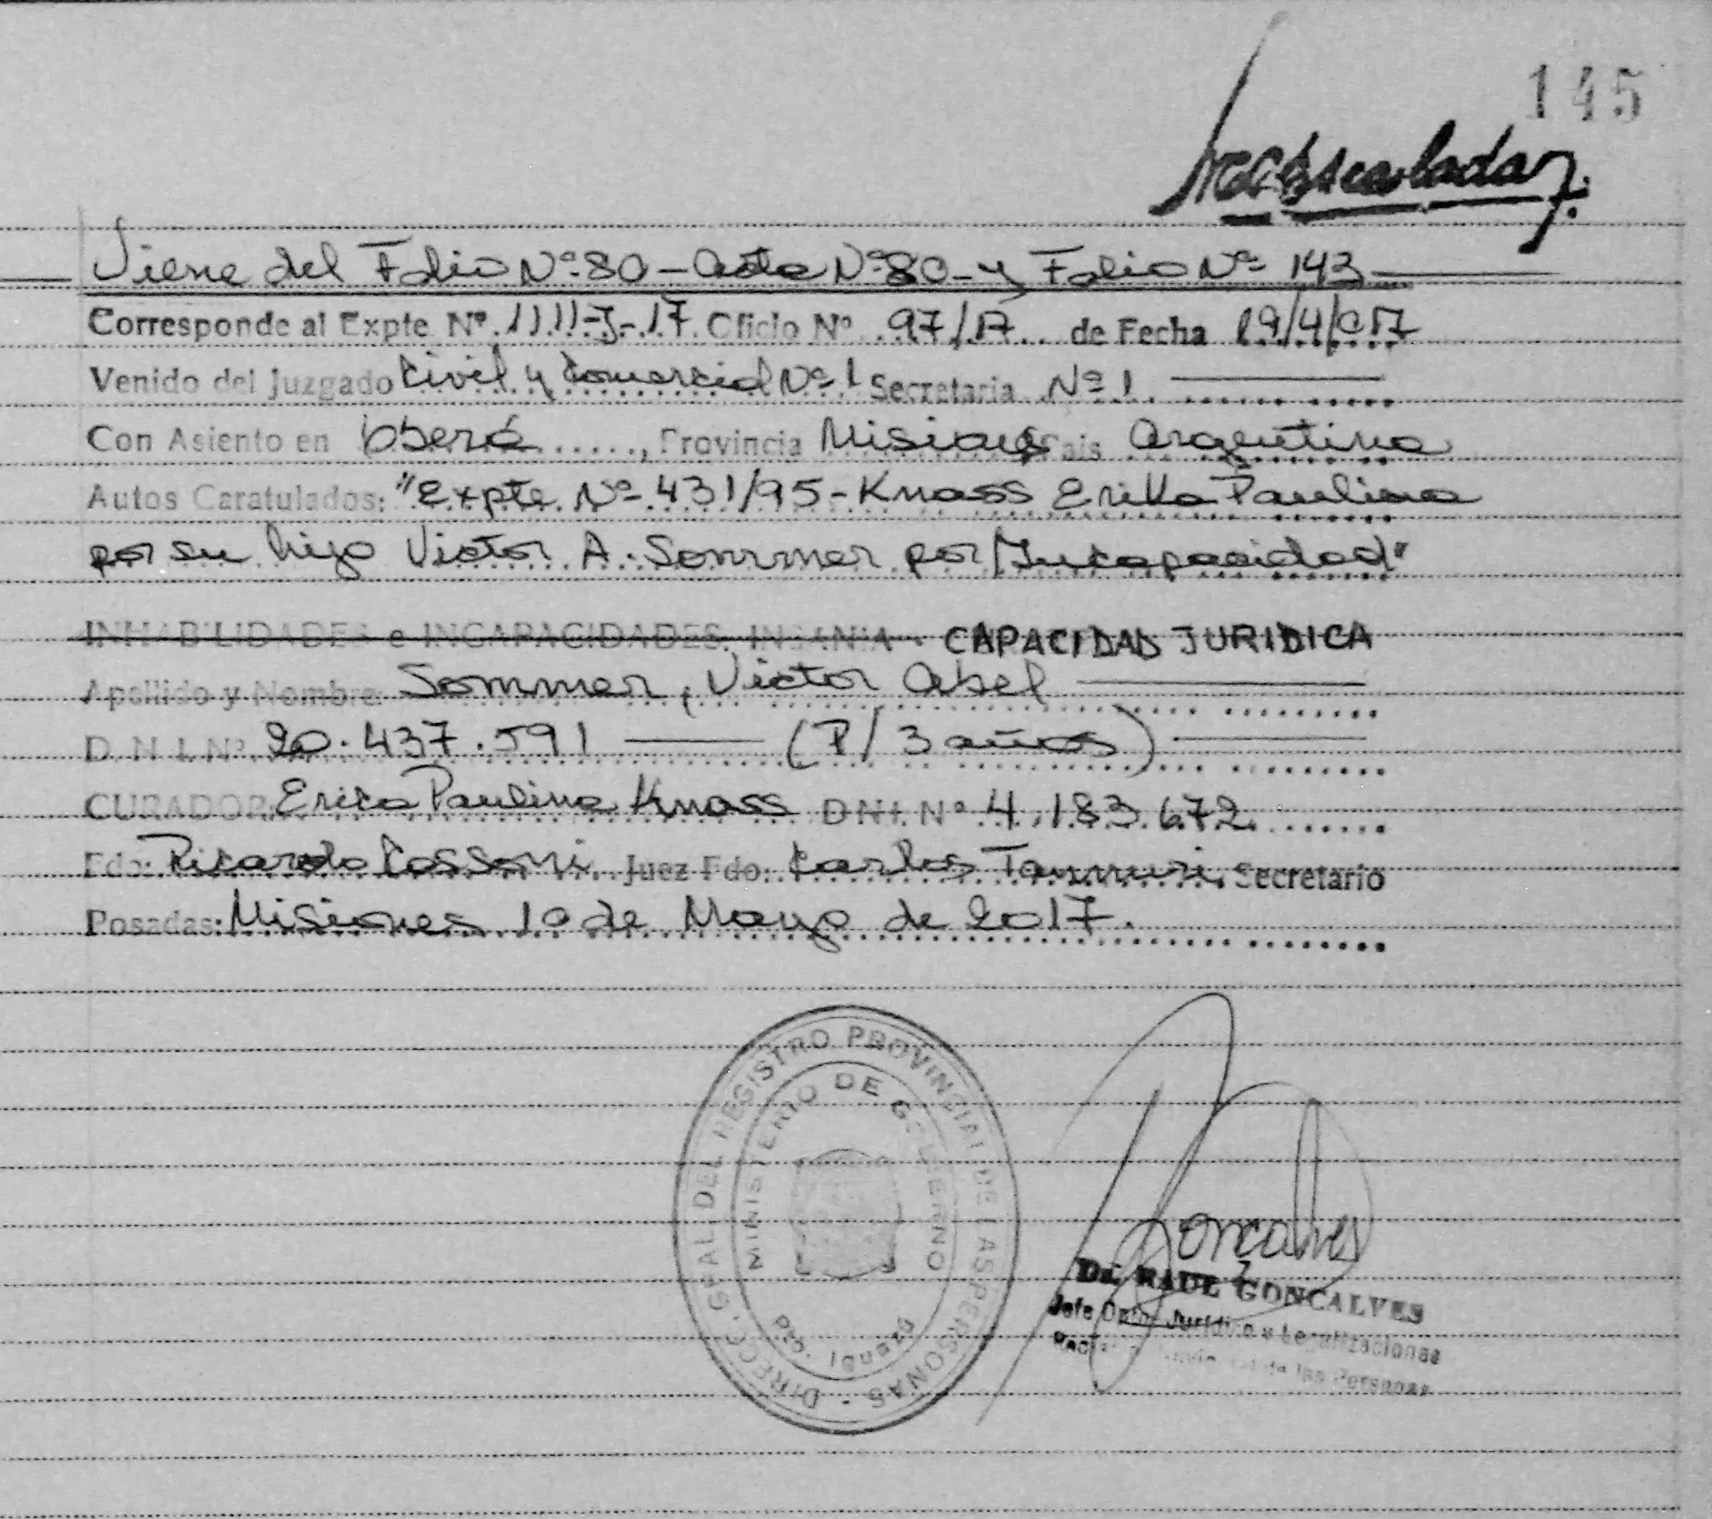 145
Viene del Folio Nº 80 - Acta Nº 80 - y Folio Nº 143
Corresponde al Expte Nº 1111-J-17 Oficio Nº 97/17 de Fecha 19/4/017
Venido del Juzgado Civil y Comercial Nº 1 Secretaria Nº 1
Con Asiento en Oberá, Provincia Misiones Pais Argentina
Autos Caratulados: "Expte Nº 431/95 - Knass Erika Paulina
por su hijo Victor A. Sommer por Incapacidad"
INHABILIDADES e INCAPACIDADES. INSANIA - CAPACIDAD JURIDICA
Apellido y Nombre Sommer, Victor Abel
D.N.I. Nº 20.437.591 (P/ 3 años)
CURADOR: Erica Paulina Knass DNI. Nº 4.183.672
Fdo: Ricardo Juez Fdo: Carlos Secretario
Posadas: Misiones 10 de Mayo de 2017.
DIRECC. GRAL DEL REGISTRO PROVINCIAL DE LAS PERSONAS
MINISTERIO DE GOBIERNO
Goncalves
Dr. RAUL GONCALVES
Jefe Dpto. Jurídico y Legalizaciones
de las Personas